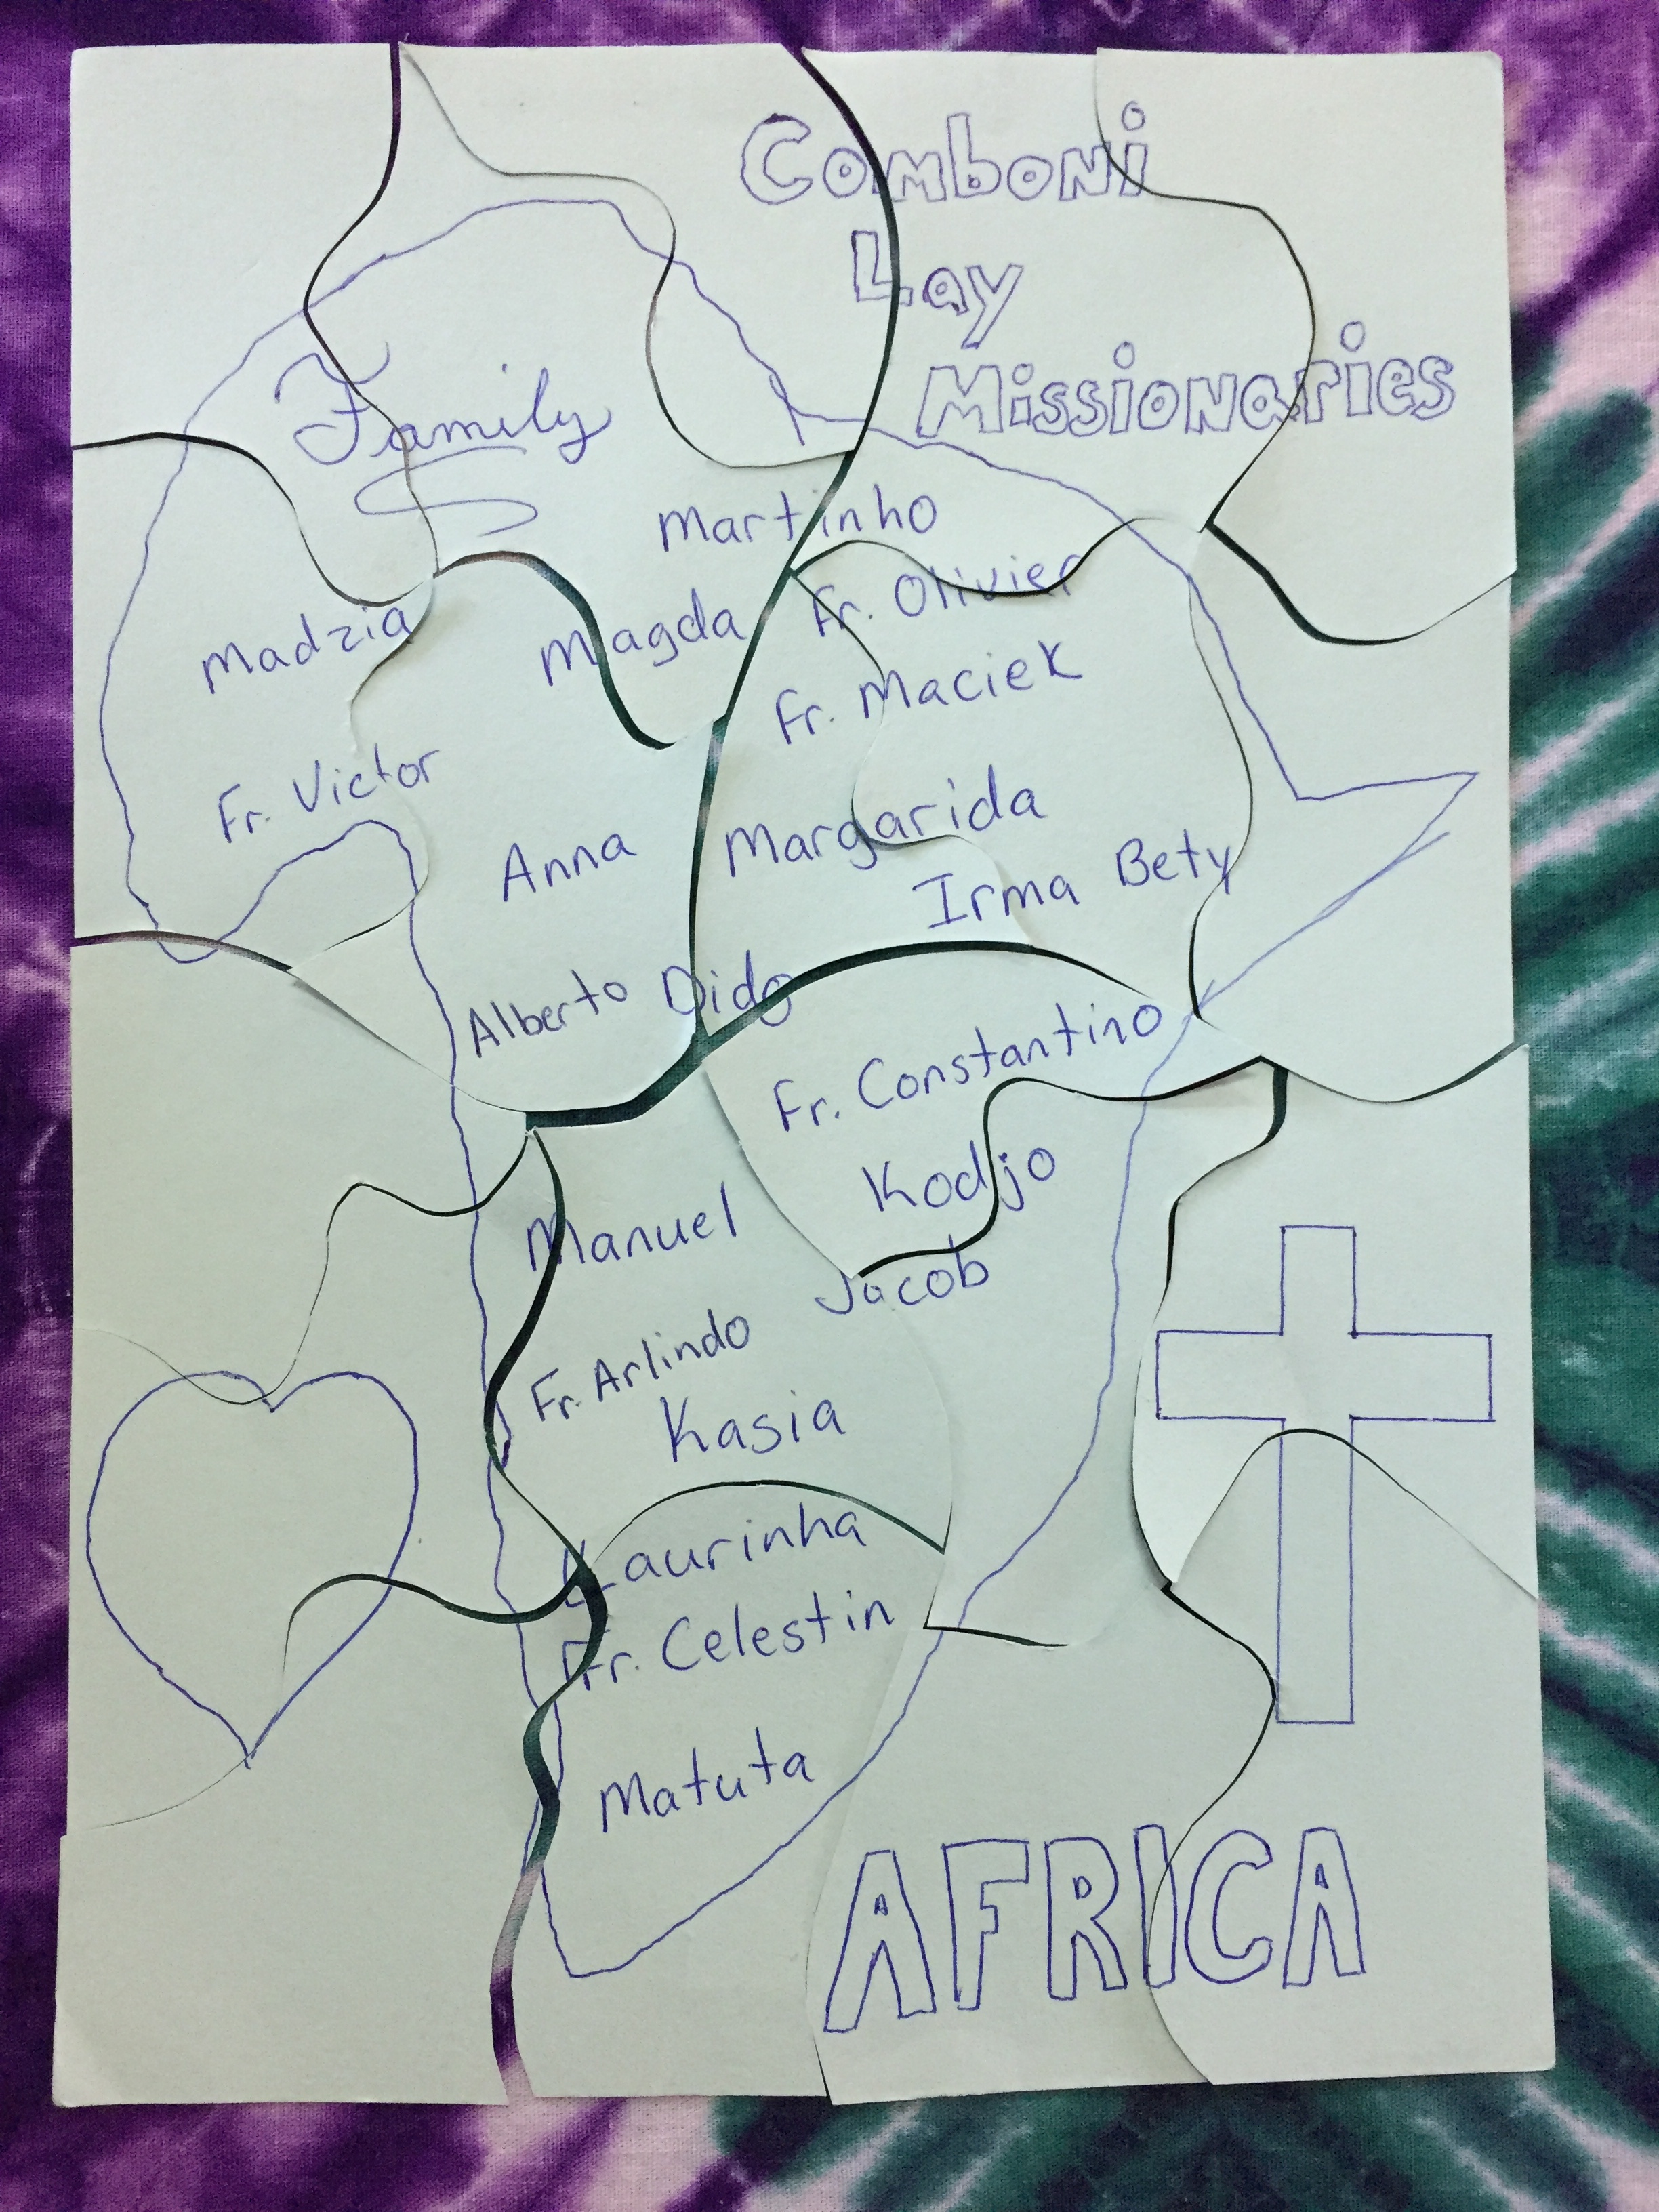 Comboni
Lay
Missionaries
Family
Martinho
Madzia
Magda
Fr. Olivier
Fr. Maciek
Fr. Victor
Anna
Margarida
Irma Bety
Alberto Dido
Fr. Constantino
Kodjo
Manuel
Jacob
Fr. Arlindo
Kasia
Laurinha
Fr. Celestin
Matuta
AFRICA